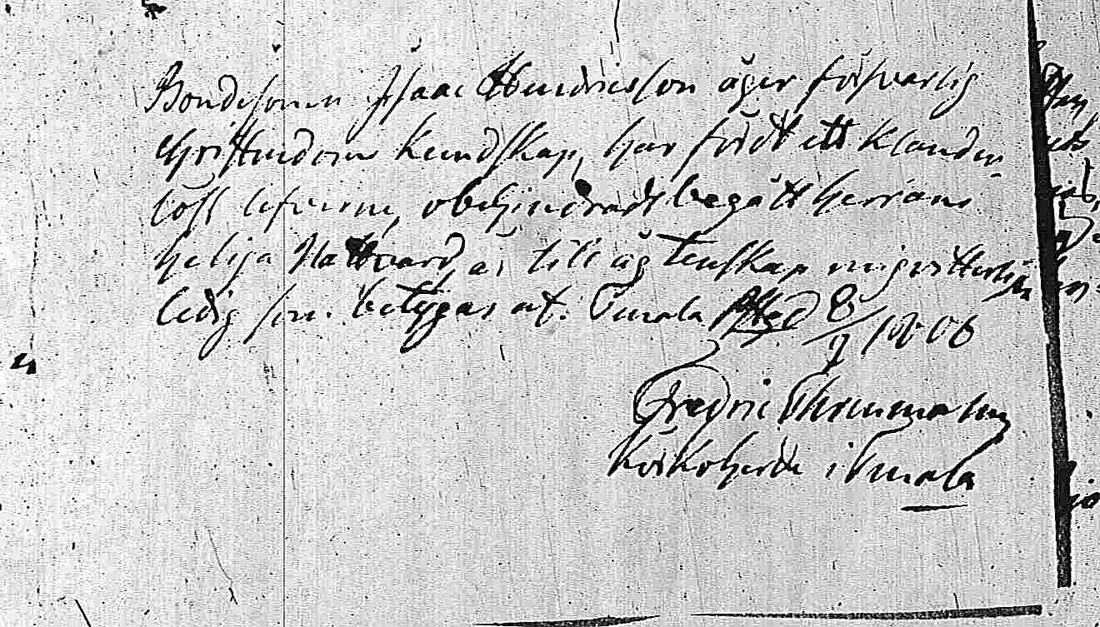 Bondesonen Isaac Hendricsson äger försvarlig
Christendoms kundskap, har fördt ett klander-
löst lefverne, obehindradt begått Herrans
heliga Nattvard, är till ägtenskap migvitterligen
ledig som betygas af. Pmola 8 1806
Fredric
Kyrkoherde i